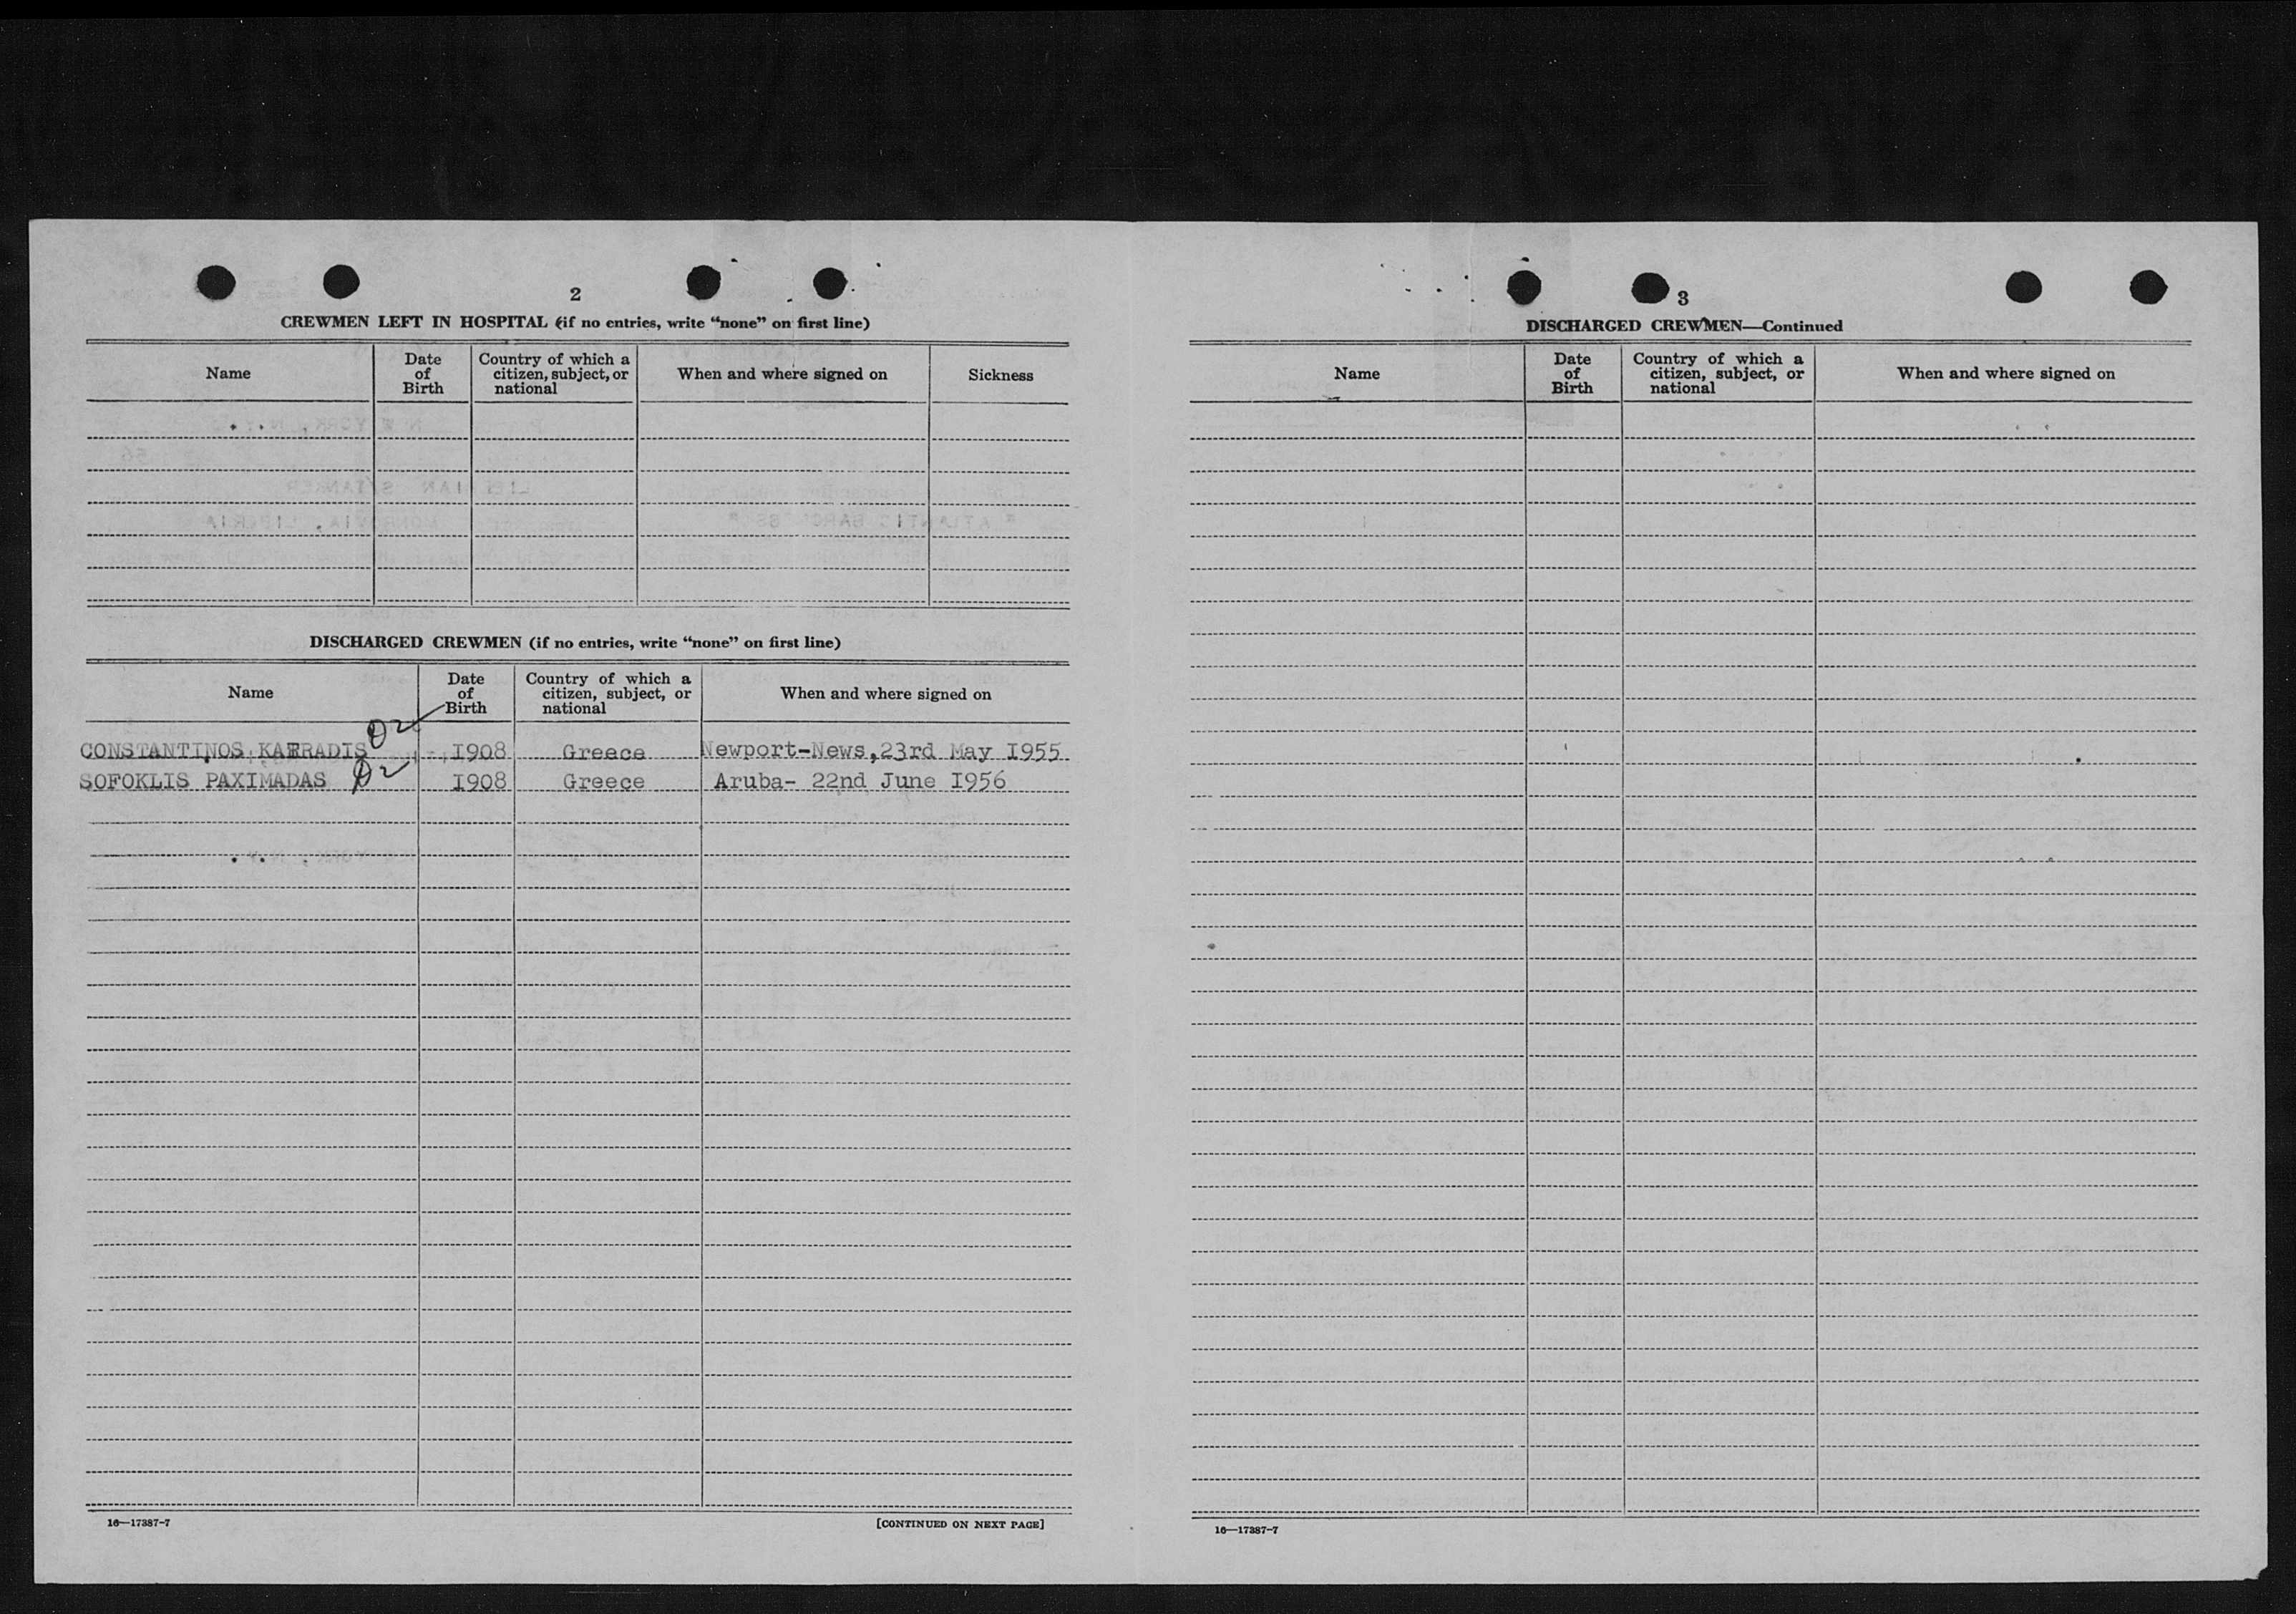 2
CREWMEN LEFT IN HOSPITAL (if no entries, write “none” on first line)
Name
Date of Birth
Country of which a citizen, subject, or national
When and where signed on
Sickness
DISCHARGED CREWMEN (if no entries, write “none” on first line)
Name
Date of Birth
Country of which a citizen, subject, or national
When and where signed on
CONSTANTINOS 1908 Greece Newport-News,23rd May 1955
SOFOKLIS PAXIMADAS 1908 Greece Aruba- 22nd June 1956
16—17387-7
[CONTINUED ON NEXT PAGE]
3
DISCHARGED CREWMEN—Continued
Name
Date of Birth
Country of which a citizen, subject, or national
When and where signed on
16—17387-7